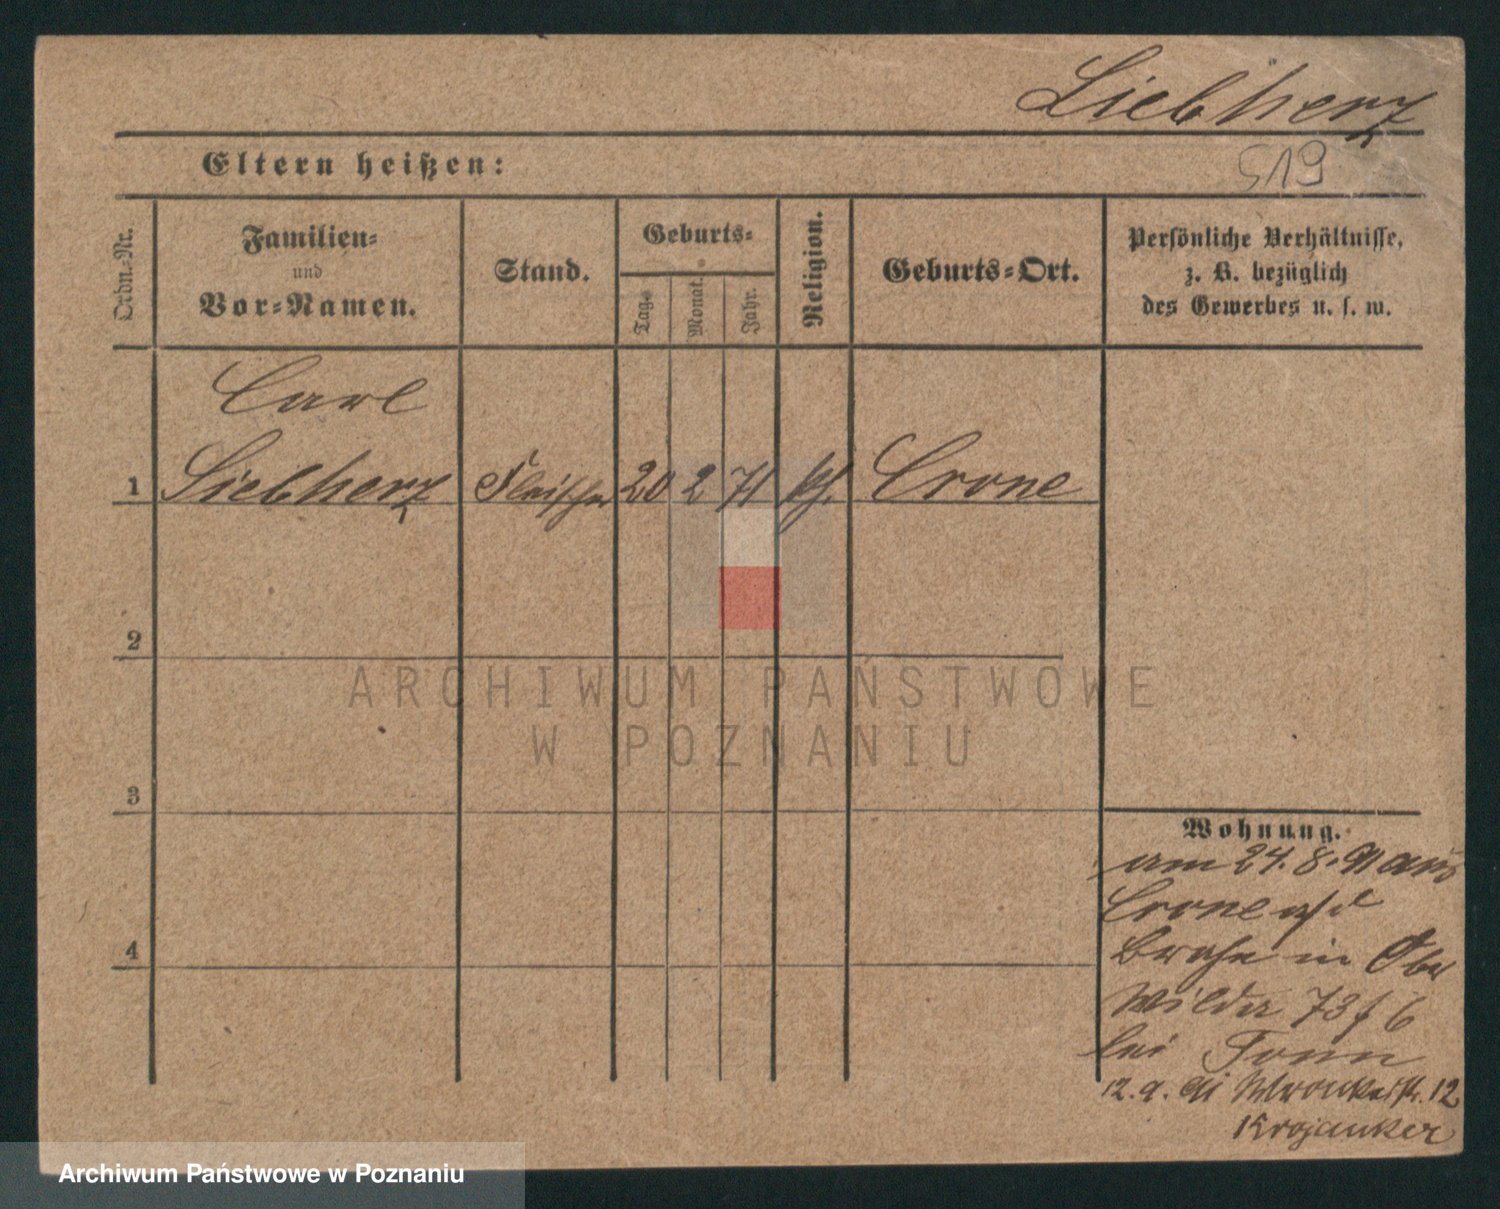 Liebherz
Eltern heißen:
519
Ordn.-Nr.
Familien-
und
Vor-Namen.
Stand.
Geburts-
Tag.
Monat.
Jahr.
Religion.
Geburts-Ort.
Persönliche Verhältnisse,
z. B. bezüglich
des Gewerbes u. s. w.
Carl
1 Liebherz Fleischer 20 2 71 Crone
2
ARCHIWUM PAŃSTWOWE
W POZNANIU
3
Wohnung.
am 24. 8. 91 aus
Crone a/d
Brahe in Ober
Wilda 73 f 6
bei Tonn
12. 9. 91 Wronkerstr. 12
Krojanker
4
Archiwum Państwowe w Poznaniu